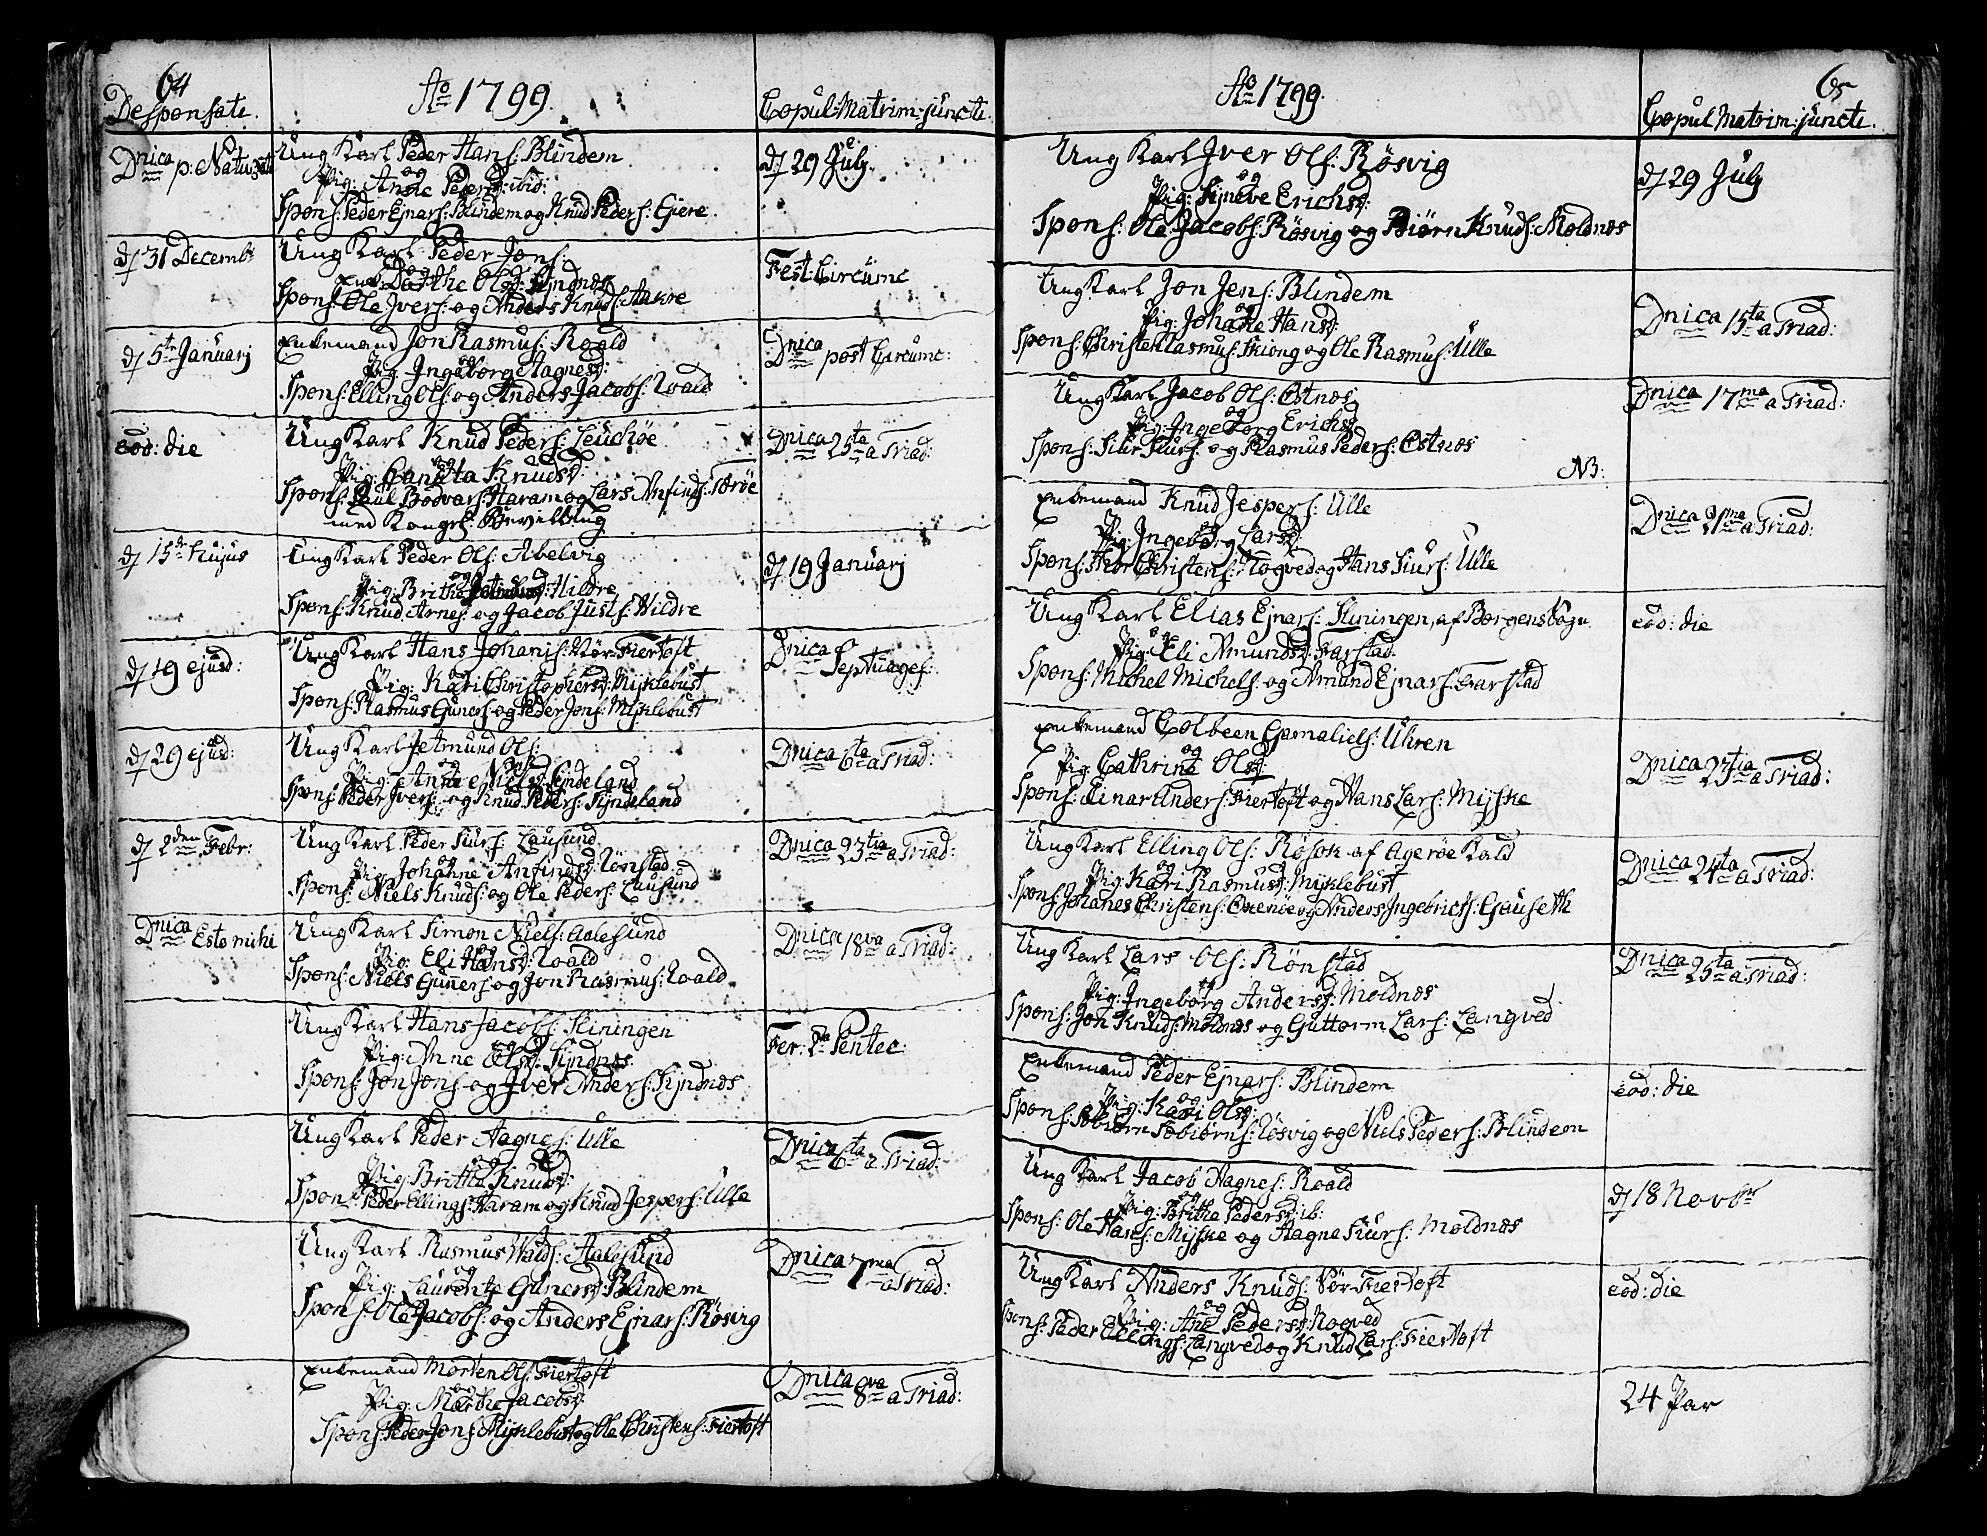 64
Aō 1799.
Desponsati.
Copul: Matrim: juncti.
Dnica p: Nativit
Ung Karl Peder Hans: Blindem
og
Pig: Anne Peders: ibid:
Spons: Peder Ejnars: Blindem og Knud Peders: Ejere.
dj 29 July
dj 31 Decembr
Ung Karl Peder Jons:
og
Enk: Dorthe Olsd: Syndnes
Spons: Ole Ivers: og Anders Knuds: Aakre
Fest: Circumc
dj 5te Januarj
Enkemand Jon Rasmus: Roald
og
Pig: Ingeborg Aagnesd:
Spons: Elling Ols: og Anders Jacobs: Roald
Dnica post Circumc:
eod: die
Ung Karl Knud Peders: Leuchøe
og
Pig: Canutta Knudsd:
Spons: Poul Bodvars: Haram og Lars Anfinds: Færøe
med Kongel: Bevilling
Dnica 25ta a Triad:
dj 15de hujus
Ung Karl Peder Ols: Abelvig
og
Pig: Brithe Hildre
Spons: Knud Arnes: og Jacob Justs: Hildre
dj 19 Januarj
dj 19 ejusd:
Ung Karl Hans Johans: Nør-Fiertoft
og
Pig: Kari Christophersd: Mijklebust
Spons: Rasmus Guners: og Peder Jons: Mijklebust
Dnica Septuages:
dj 29 ejusd:
Ung Karl Jetmund Ols:
og
Pig: Anne Nielsd: Syndeland
Spons: Peder Ivers: og Knud Peders: Syndeland
Dnica 6ta a Triad:
dj 2den Febr:
Ung Karl Peder Siurs: Lausund
og
Pig: Johanne Anfindsd: Rønstad
Spons: Niels Knuds: og Ole Peders: Lausund
Dnica 23tia a Triad:
Dnica Esto mihi
Ung Karl Simon Niels: Aalesund
og
Pig: Eli Hansd: Roald
Spons: Niels Guners: og Jon Rasmus: Roald
Dnica 18va a Triad:
Ung Karl Hans Jacobs: Sliningen
og
Pig: Anne Elsd: Syndnes
Spons: Jon Jons: og Iver Anders: Syndnes
Fer: 2da Pentec:
Ung Karl Peder Aagnes: Ulle
og
Pig: Brithe Knudsd:
Spons: Peder Ellings: Haram og Knud Jespers: Ulle
Dnica 6ta a Triad:
Ung Karl Rasmus Walds: Aalesund
og
Pig: Laurentse Gunersd: Blindem
Spons: Ole Jacobs: og Anders Ejnars: Røsvig
Dnica 7ma a Triad:
Enkemand Morten Ols: Fiertoft
og
Pig: Marthe Jacobsd:
Spons: Peder Jons: Mijklebust og Ole Christens: Fiertoft
Dnica 8va a Triad:
65
Aō 1799.
Copul: Matrim: juncti.
Ung Karl Iver Ols: Røsvig
og
Pig: Syneve Erichsd:
Spons: Ole Jacobs: Røsvig og Biørn Knuds: Moldnæs
dj 29 July
Ung Karl Jon Jens: Blindem
og
Pig: Johanne Hansd:
Spons: Christen Rasmus: Skiong og Ole Rasmus: Ulle
Dnica 15ta a Triad:
Ung Karl Jacob Ols: Østnæs
og
Pig: Ingeborg Erichsd:
Spons: Siur Siurs: og Rasmus Peders: Østnæs
Dnica 17ma a Triad:
NB:
Enkemand Knud Jespers: Ulle
og
Pig: Ingeborg Larsd:
Spons: Thor Christens: Rogved og Hans Siurs: Ulle
Dnica 21ma a Triad:
Ung Karl Elias Ejnars: Sliningen, af Borgens Sogn
og
Pig: Eli Amundsd: Farstad
Spons: Michel Michels: og Amund Ejnars: Farstad
eod: die
Enkemand Colbeen Gamaliels: Uhren
og
Pig: Cathrine Olsd:
Spons: Einar Anders: Fiertoft og Hans Lars: Mijske
Dnica 23tia a Triad:
Ung Karl Elling Ols: Røsok af Agerøe Kald
og
Pig: Kari Rasmusd: Mijklebust
Spons: Johanes Christens: Oxenøe og Anders Ingebrichts: Gauseth
Dnica 24ta a Triad:
Ung Karl Lars Ols: Rønstad
og
Pig: Ingeborg Andersd: Moldnæs
Spons: Jon Knuds: Moldnæs og Guttorm Lars: Langved
Dnica 25ta a Triad:
Enkemand Peder Ejnars: Blindem
og
Pig: Kari Olsd:
Spons: Æsbiørn Æsbiørns: Røsvig og Niels Peders: Blindem
eod: die
Ung Karl Jacob Aagnes: Roald
og
Pig: Brithe Pedersd: ib:
Spons: Ole Hans: Mijske og Hagne Siurs: Moldnæs
dj 18 Novbr
Ung Karl Anders Knuds: Nør-Fiertoft
og
Pig: Ane Pedersd: Rogved
Spons: Peder Ellings: Langved og Knud Lars: Fiertoft
eod: die
24 Par